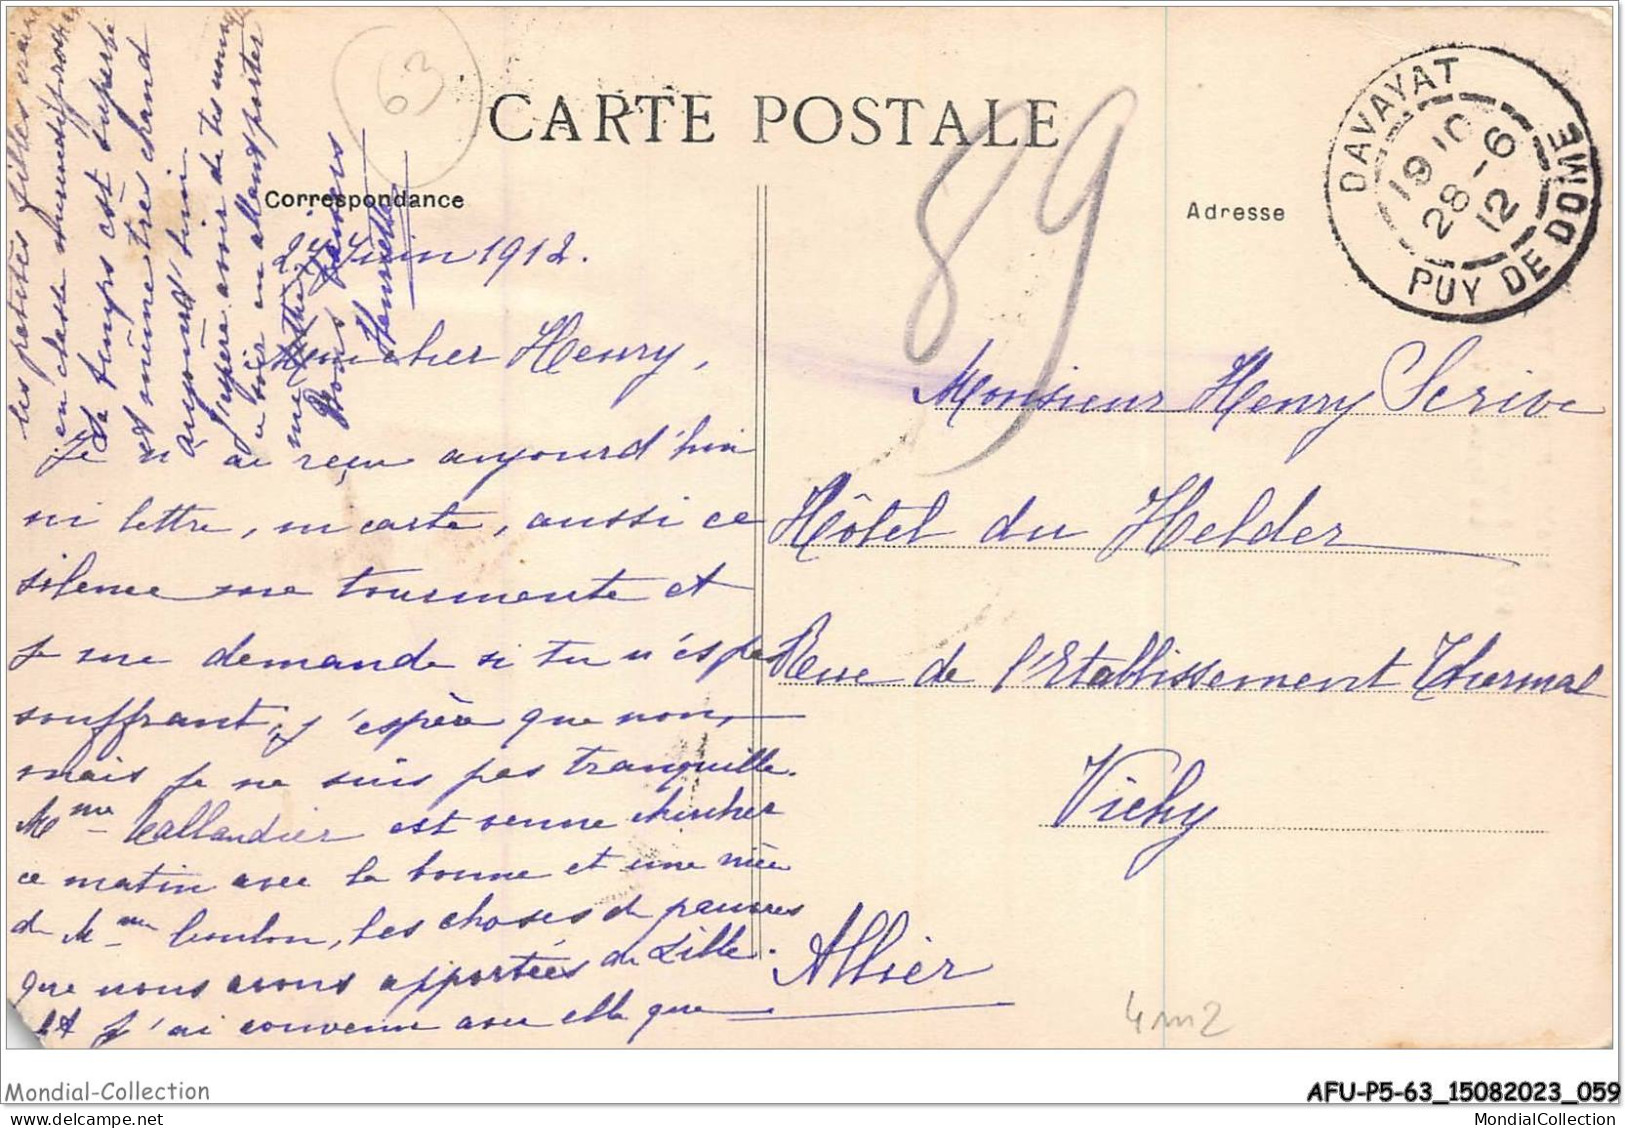 63
CARTE POSTALE
89
Correspondance
Adresse
DAVAYAT
19 10
28 -6
12
PUY DE DOME
27 Juin 1912.
Mon cher Henry,
Je n'ai reçu aujourd'hui
ni lettre, ni carte, aussi ce
silence me tourmente et
je me demande si tu n'es pas
souffrant; j'espère que non,
mais je ne suis pas tranquille.
Mme Lallandier est venue chercher
ce matin avec la bonne et une nièce
de Mme Coulon, les choses de pauvres
que nous avons apportées de Lille.
Et j'ai convenu avec elle que
les petites filles
en classe
Le temps est superbe
et même très chaud
aujourd'hui
J'espère avoir de tes
ce soir en allant porter
Bons baisers
Henriette
Monsieur Henry Scrive
Hôtel du Helder
Rue de l'Etablissement Thermal
Vichy
Allier
4m2
Mondial-Collection
AFU-P5-63_15082023_059
MondialCollection